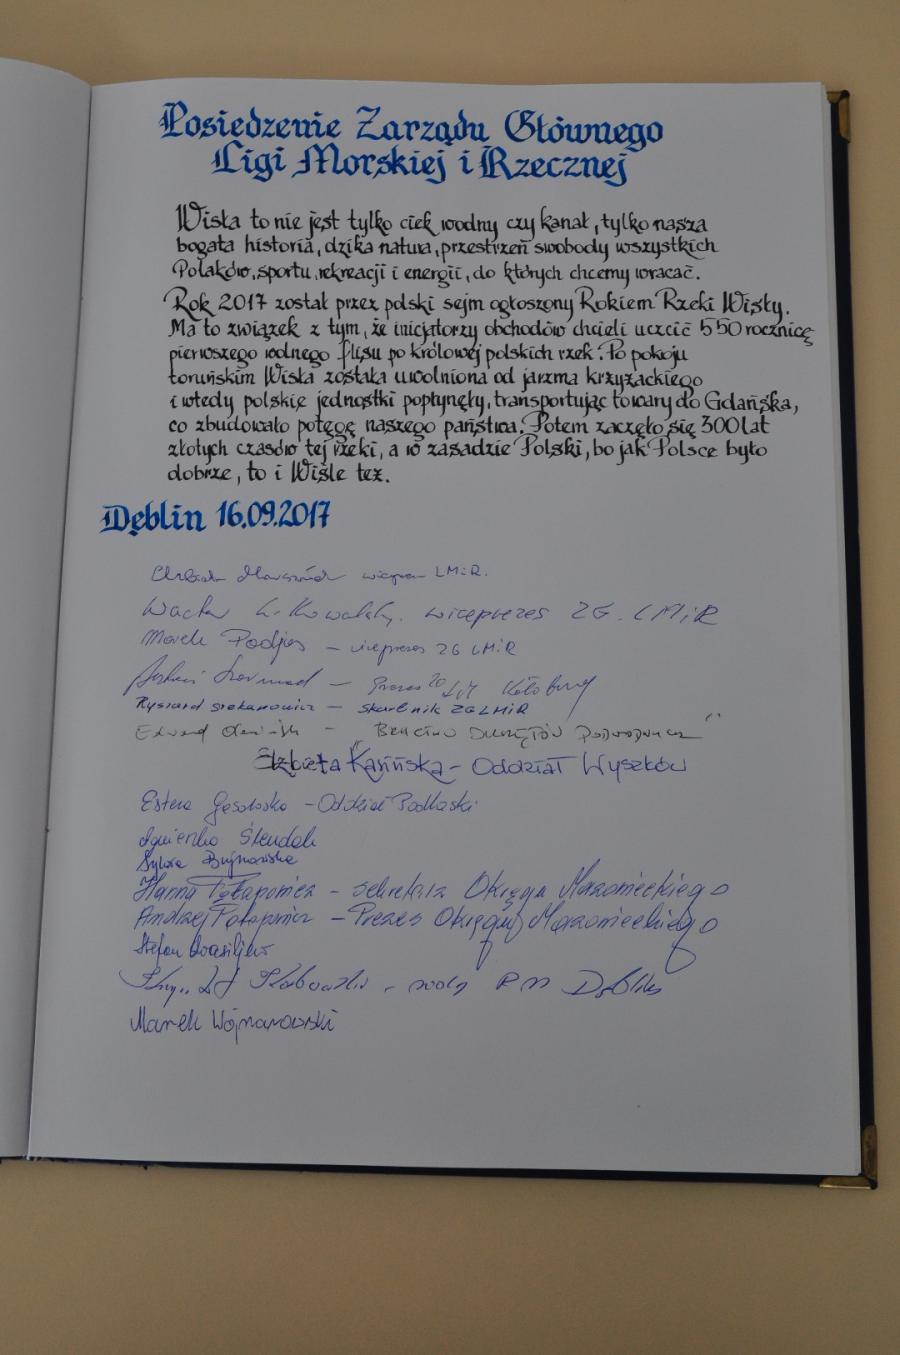 Posiedzenie Zarządu Głównego
Ligi Morskiej i Rzecznej
Wisła to nie jest tylko ciek wodny czy kanał, tylko nasza
bogata historia, dzika natura, przestrzeń swobody wszystkich
Polaków, sportu, rekreacji i energii, do których chcemy wracać.
Rok 2017 został przez polski sejm ogłoszony Rokiem Rzeki Wisły.
Ma to związek z tym, że inicjatorzy obchodów chcieli uczcić 550 rocznicę
pierwszego wolnego flisu po królowej polskich rzek. Po pokoju
toruńskim Wisła została uwolniona od jarzma krzyżackiego
i wtedy polskie jednostki popłynęły, transportując towary do Gdańska,
co zbudowało potęgę naszego państwa. Potem zaczęło się 300 lat
złotych czasów tej rzeki, a w zasadzie Polski, bo jak Polsce było
dobrze, to i Wiśle też.
Dęblin 16.09.2017
LMiR.
Wacław L. Kowalski, wiceprezes ZG. LMiR
Marek Podjas – wiceprezes ZG LMiR
– Prezes
Ryszard – skarbnik ZGLMiR
Edward – "Bractwo
Elżbieta Kasińska – Oddział Wyszków
Estera – Oddział Podlaski
Sylwia
Hanna Potapowicz – sekretarz Okręgu Mazowieckiego
Andrzej Potapowicz – Prezes Okręgu Mazowieckiego
Stefan
Marek Wojnarowski